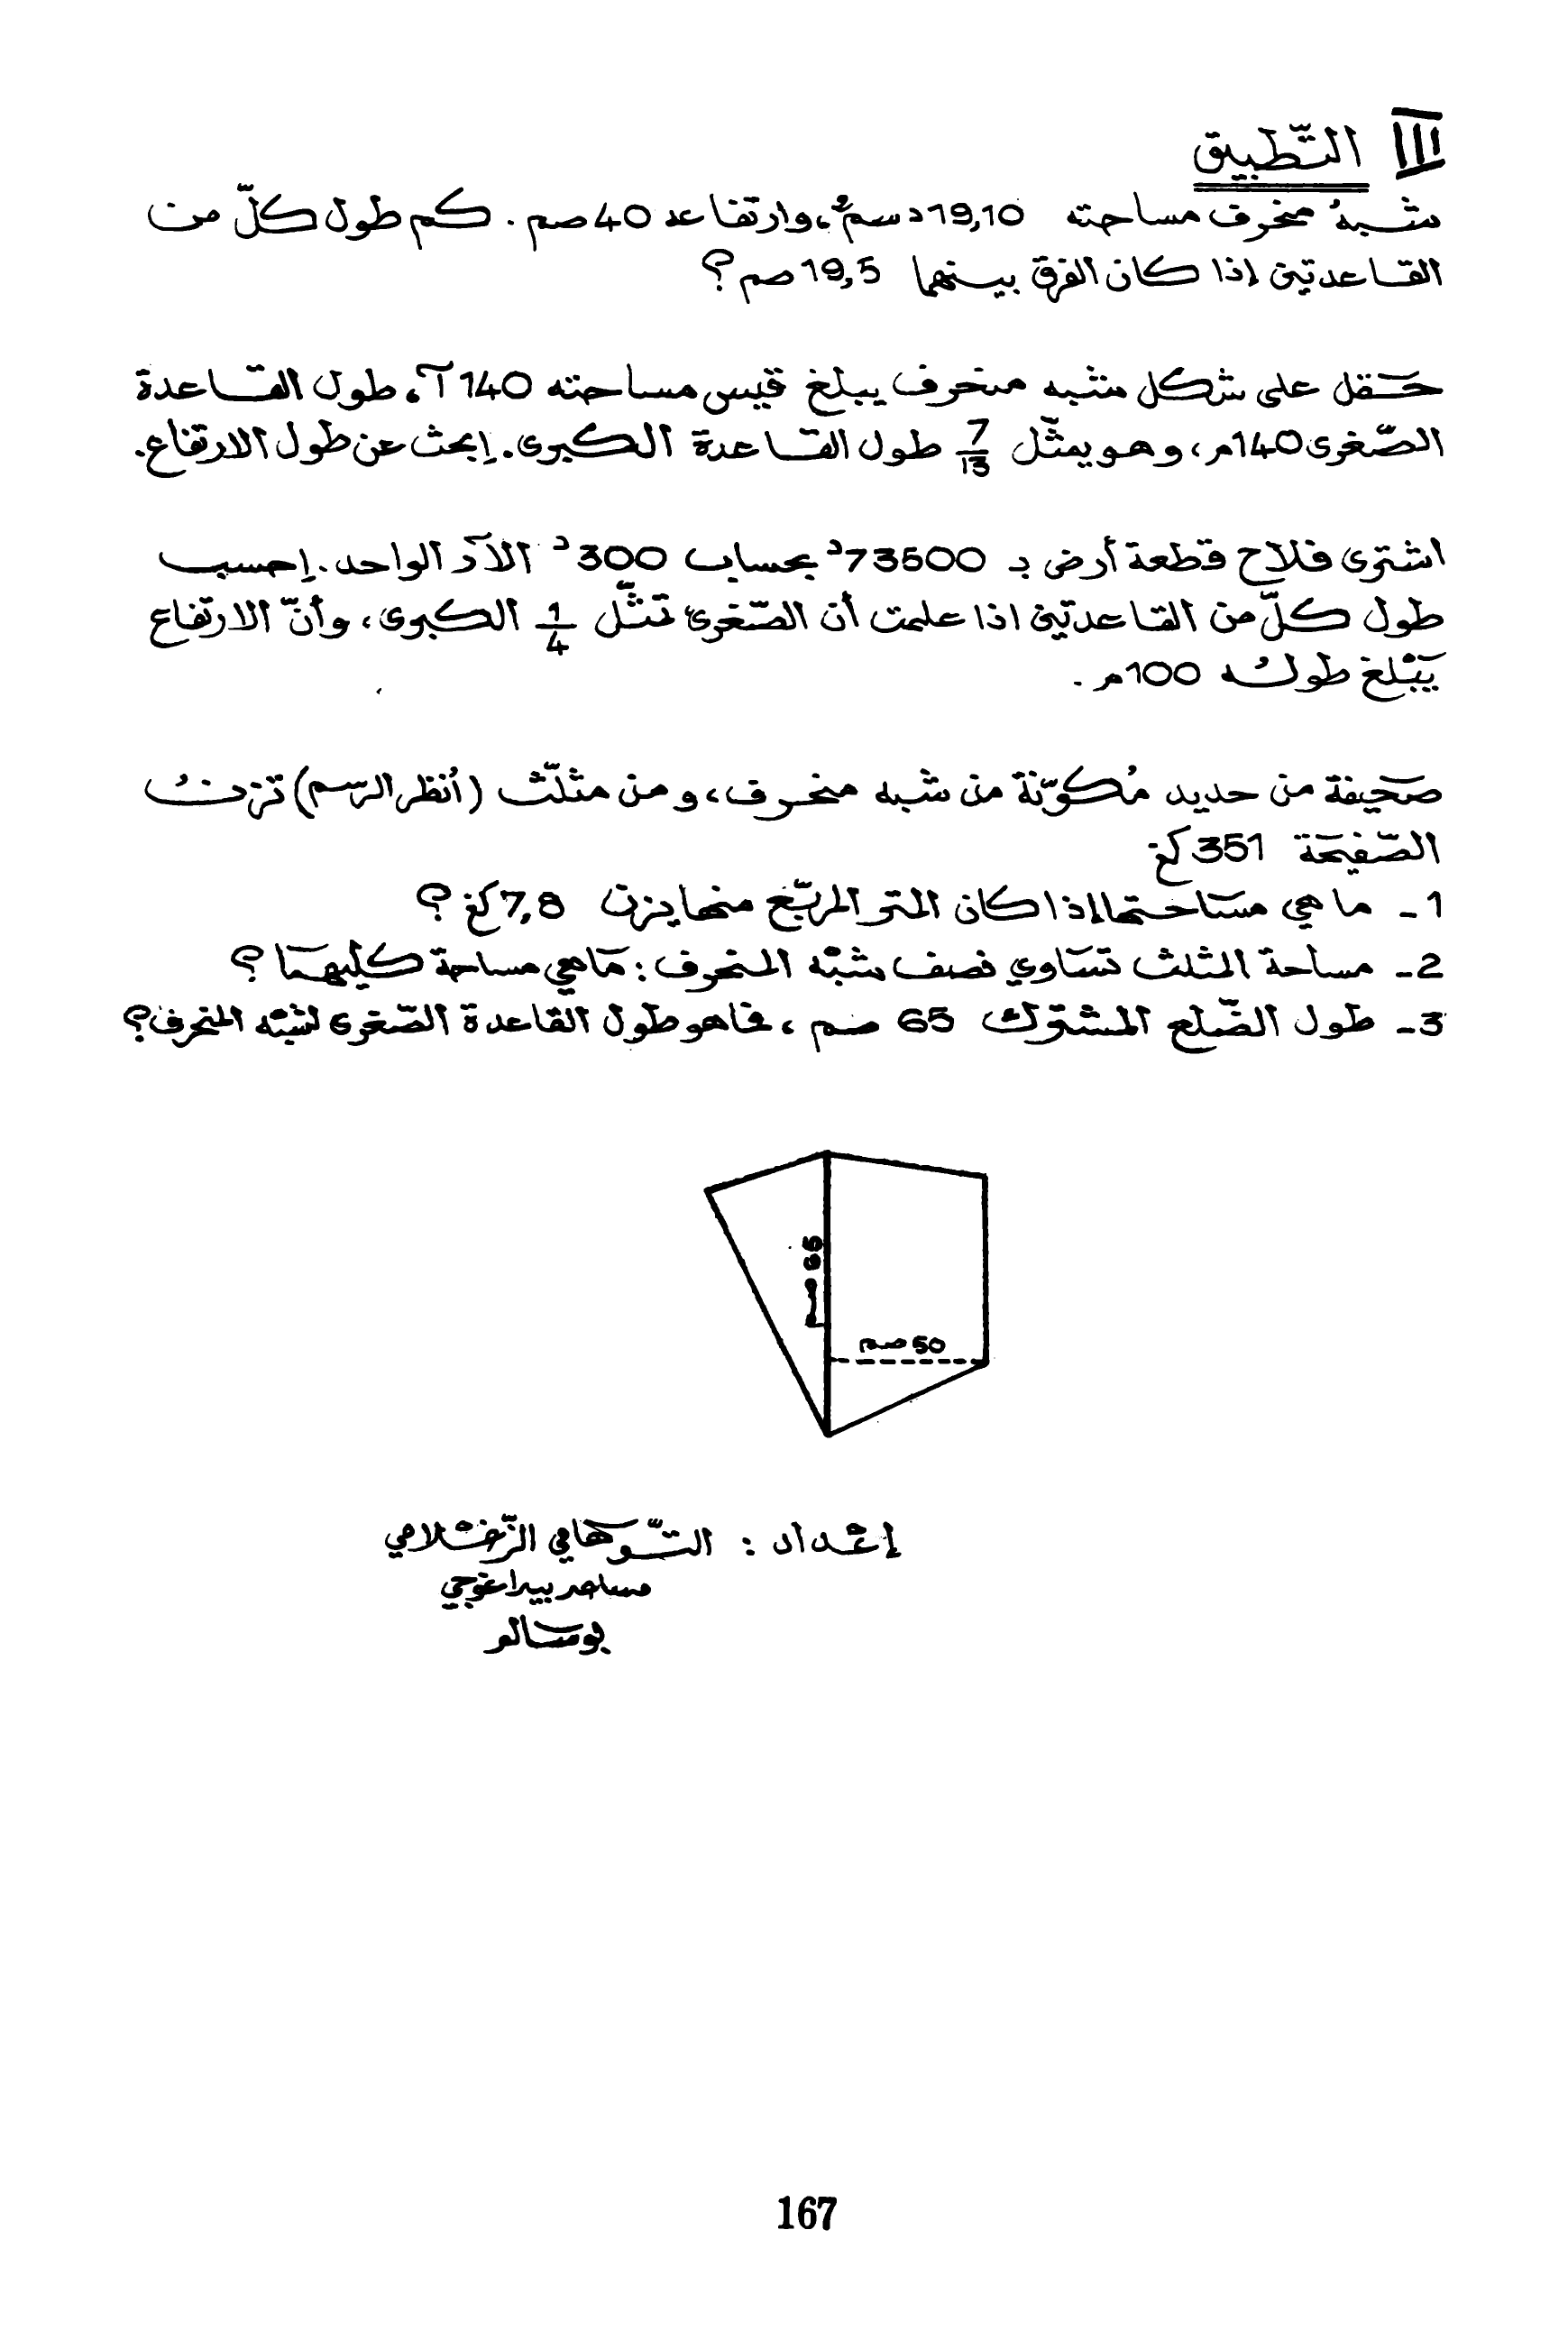 III التّطبيق
شبه منحرف مساحته 19,10 دسم²، وارتفاعه 40 صم. كم طول كلّ من
القاعدتين إذا كان الفرق بينهما 19,5 صم؟
حقل على شكل شبه منحرف يبلغ قيس مساحته 140 آ، طول القاعدة
الصّغرى 140م، وهو يمثّل 7/13 طول القاعدة الكبرى. إبحث عن طول الارتفاع.
اشترى فلاح قطعة أرض بـ 73500د بحساب 300د الآر الواحد. إحسب
طول كلّ من القاعدتين اذا علمت أن الصّغرى تمثّل 1/4 الكبرى، وأنّ الارتفاع
يَبْلغ طوله 100م.
صحيفة من حديد مُكوّنة من شبه منحرف، ومن مثلّث (أنظر الرّسم) تزن
الصّفيحَة 351 كغ
1- ما هي مسَاحتها إذا كان المتر المربّع منها يزن 7,8 كغ؟
2- مساحة المثلث تسَاوي نصف شبْه المنحرف: مَاهي مساحة كليْهمَا؟
3- طول الضّلع المشترك 65 صم، فما هو طول القاعدة الصّغرى لشبْه المنحرف؟
65 صم
50 صم
إعْداد: التّوهامي الزّغْلامي
مساعد بيداغوجي
بوسَالم
167